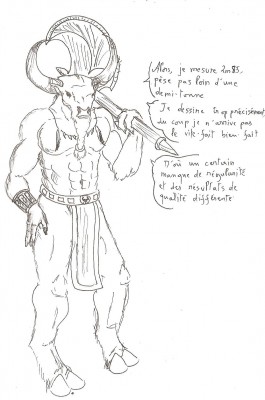 Alors, je mesure 2m85,
pèse pas loin d'une
demi-tonne
Je dessine trop précisément
du coup je n'arrive pas
le vite-fait bien fait
D'où un certain
manque de régularité
et des résultats de
qualité différente